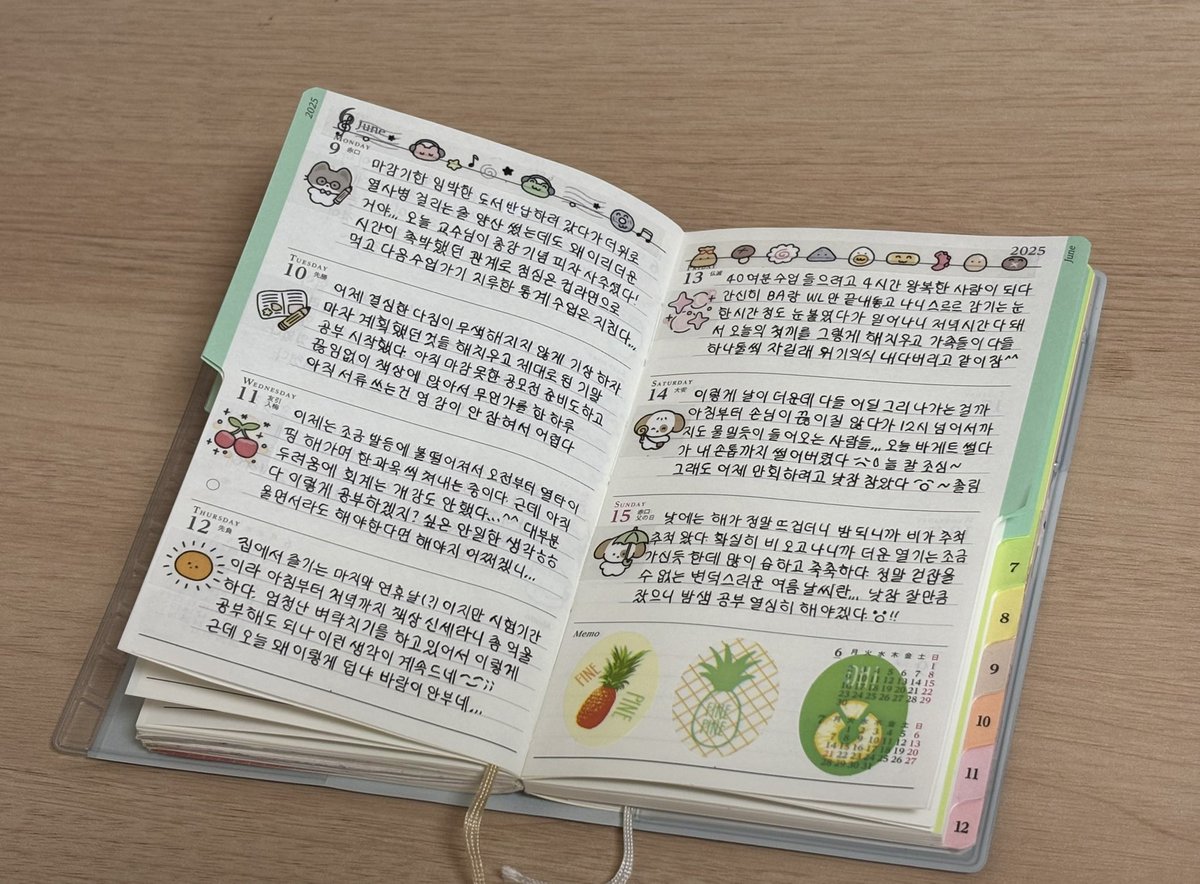 2025
6 June
MONDAY
9 赤口
마감기한 임박한 도서반납하려 갔다가 더위로
열사병 걸리는줄 양산 썼는데도 왜 이리 더운
거야... 오늘 교수님이 종강 기념 피자 사주셨다!
시간이 촉박했던 관계로 점심은 컵라면으로
먹고 다음수업가기 지루한 통계 수업은 지친다...
TUESDAY
10 先勝
어제 결심한 다짐이 무색해지지 않게 기상 하자
마자 계획했던 것들 해치우고 제대로 된 기말
공부 시작했다. 아직 마감못한 공모전 준비도하고
끊임없이 책상에 앉아서 무언가를 한 하루
아직 서류 쓰는건 영 감이 안 잡혀서 어렵다
WEDNESDAY
11 友引
入梅
이제는 조금 발등에 불떨어져서 오전부터 열타이
핑 해가며 한과목씩 쳐내는 중이다. 근데 아직
두려움에 회계는 개강도 안했다...^^ 대부분
다 이렇게 공부하겠지? 싶은 안일한 생각ㅎㅎ
울면서라도 해야한다면 해야지 어쩌겠니...
THURSDAY
12 先負
집에서 즐기는 마지막 연휴날(?)이지만 시험기간
이라 아침부터 저녁까지 책상 신세라니 좀 억울
하다. 엄청난 벼락치기를 하고있어서 이렇게
공부해도 되나 이런 생각이 계속드네
근데 오늘 왜 이렇게 덥냐 바람이 안부네...
2025
June
13 仏滅
40여분수업 들으려고 4시간 왕복한 사람이 되다
간신히 BA랑 WL만 끝내놓고 나니 스르르 감기는 눈
한시간 정도 눈붙였다가 일어나니 저녁시간 다 돼
서 오늘의 첫끼를 그렇게 해치우고 가족들이 다들
하나둘씩 자길래 위기의식 내다버리고 같이 잠^^
SATURDAY
14 大安
이렇게 날이 더운데 다들 어딜 그리 나가는 걸까
아침부터 손님이 끊이질 않다가 12시 넘어서까
지도 물밀듯이 들어오는 사람들... 오늘 바게트 썰다
가 내 손톱까지 썰어버렸다 늘 칼 조심~
그래도 어제 만회하려고 낮잠 참았다 ~졸림
SUNDAY
15 赤口
父の日
낮에는 해가 정말 뜨겁더니 밤 되니까 비가 추적
추적 왔다 확실히 비 오고나니까 더운 열기는 조금
가신듯 한데 많이 습하고 축축하다. 정말 걷잡을
수 없는 변덕스러운 여름 날씨란... 낮잠 잘만큼
잤으니 밤샘 공부 열심히 해야겠다!!
Memo
FINE
PINE
FINE
PINE
6 月 火 水 木 金 土 日
1
7 8
13 14 15
20 21 22
27 28 29
7
8
9
10
11
12